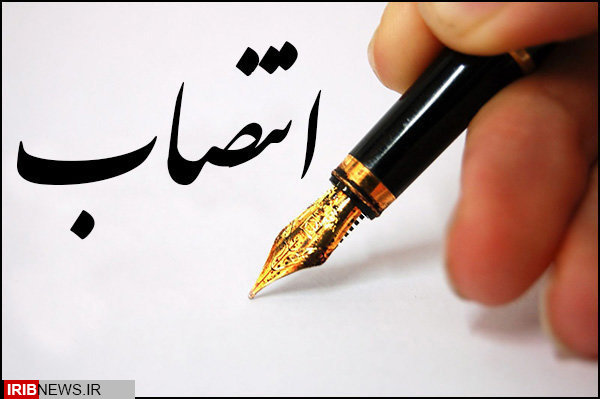 انتصاب
IRIBNEWS.IR